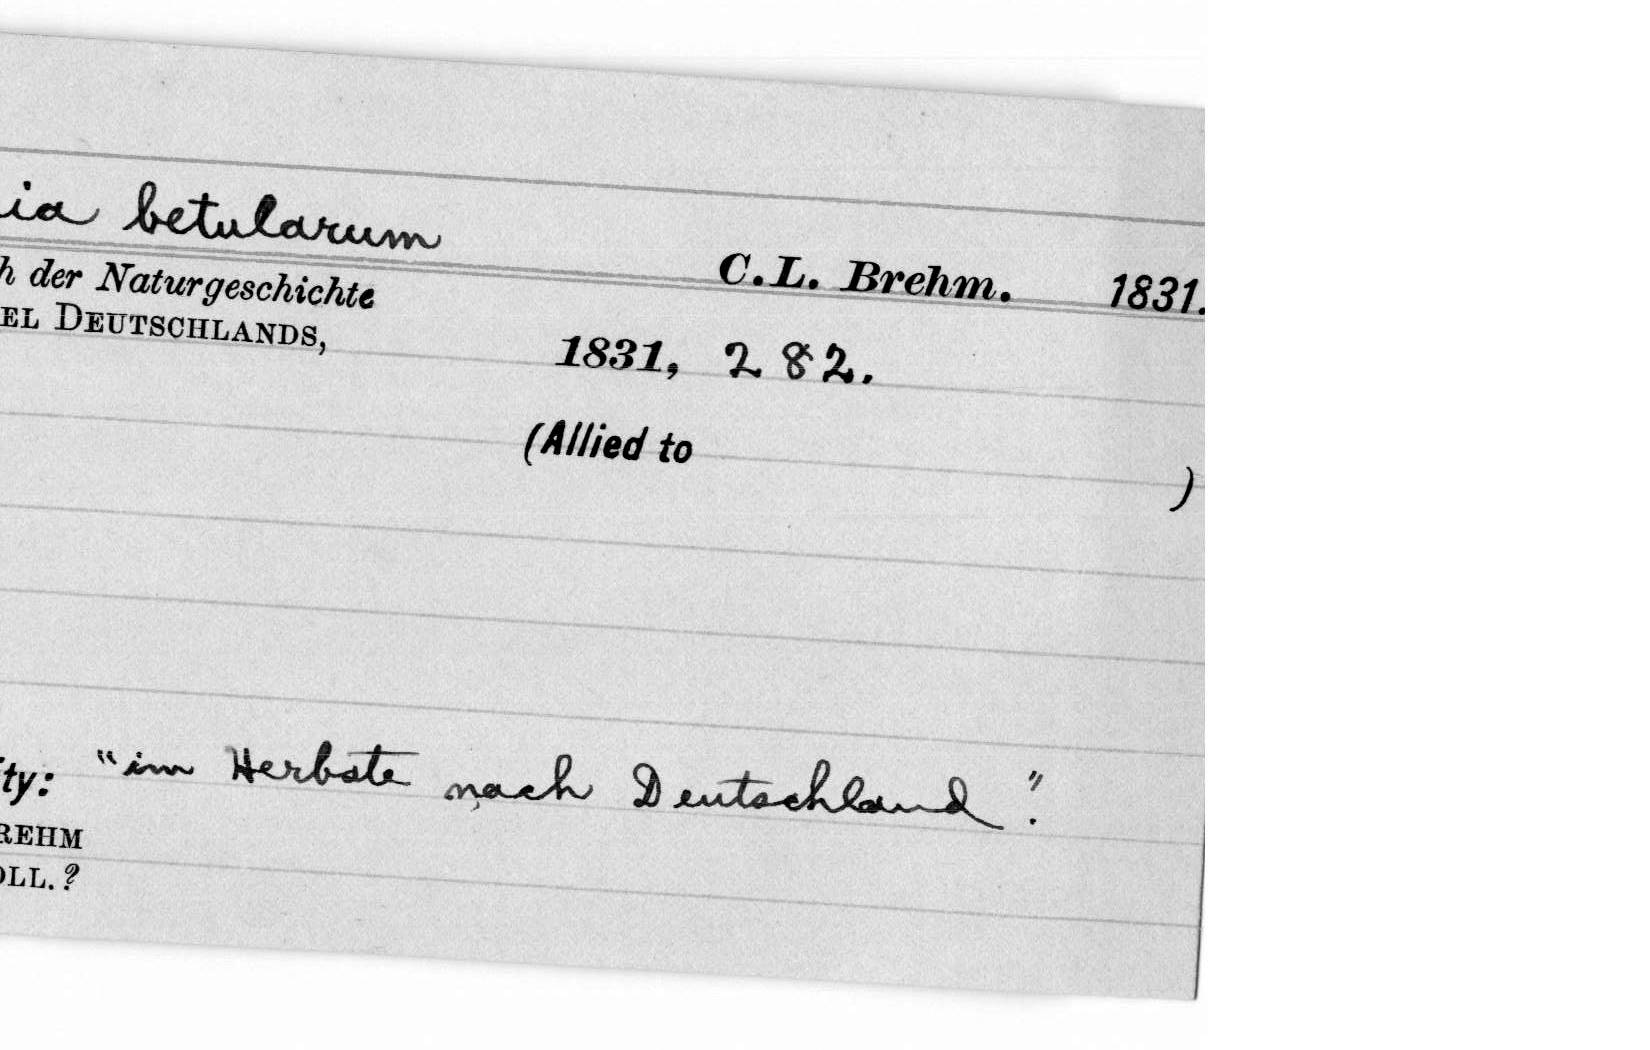 ia betularum
C.L. Brehm. 1831.
h der Naturgeschichte
EL DEUTSCHLANDS,
1831, 282.
(Allied to )
ity: "im Herbste nach Deutschland".
REHM
OLL.?